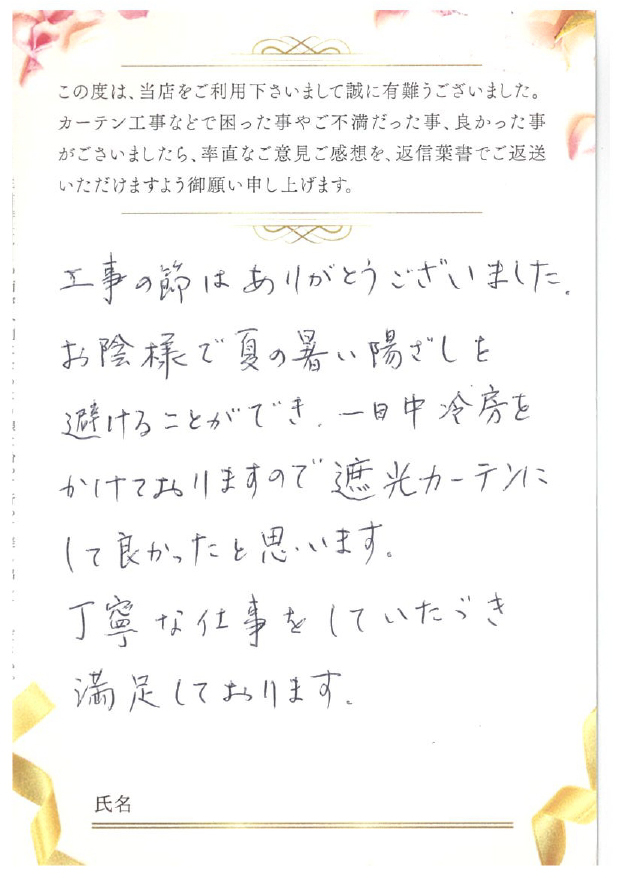 この度は、当店をご利用下さいまして誠に有難うございました。
カーテン工事などで困った事やご不満だった事、良かった事
がございましたら、率直なご意見ご感想を、返信葉書でご返送
いただけますよう御願い申し上げます。
工事の節はありがとうございました。
お陰様で夏の暑い陽ざしを
避けることができ、一日中冷房を
かけておりますので遮光カーテンに
して良かったと思います。
丁寧な仕事をしていただき
満足しております。
氏名